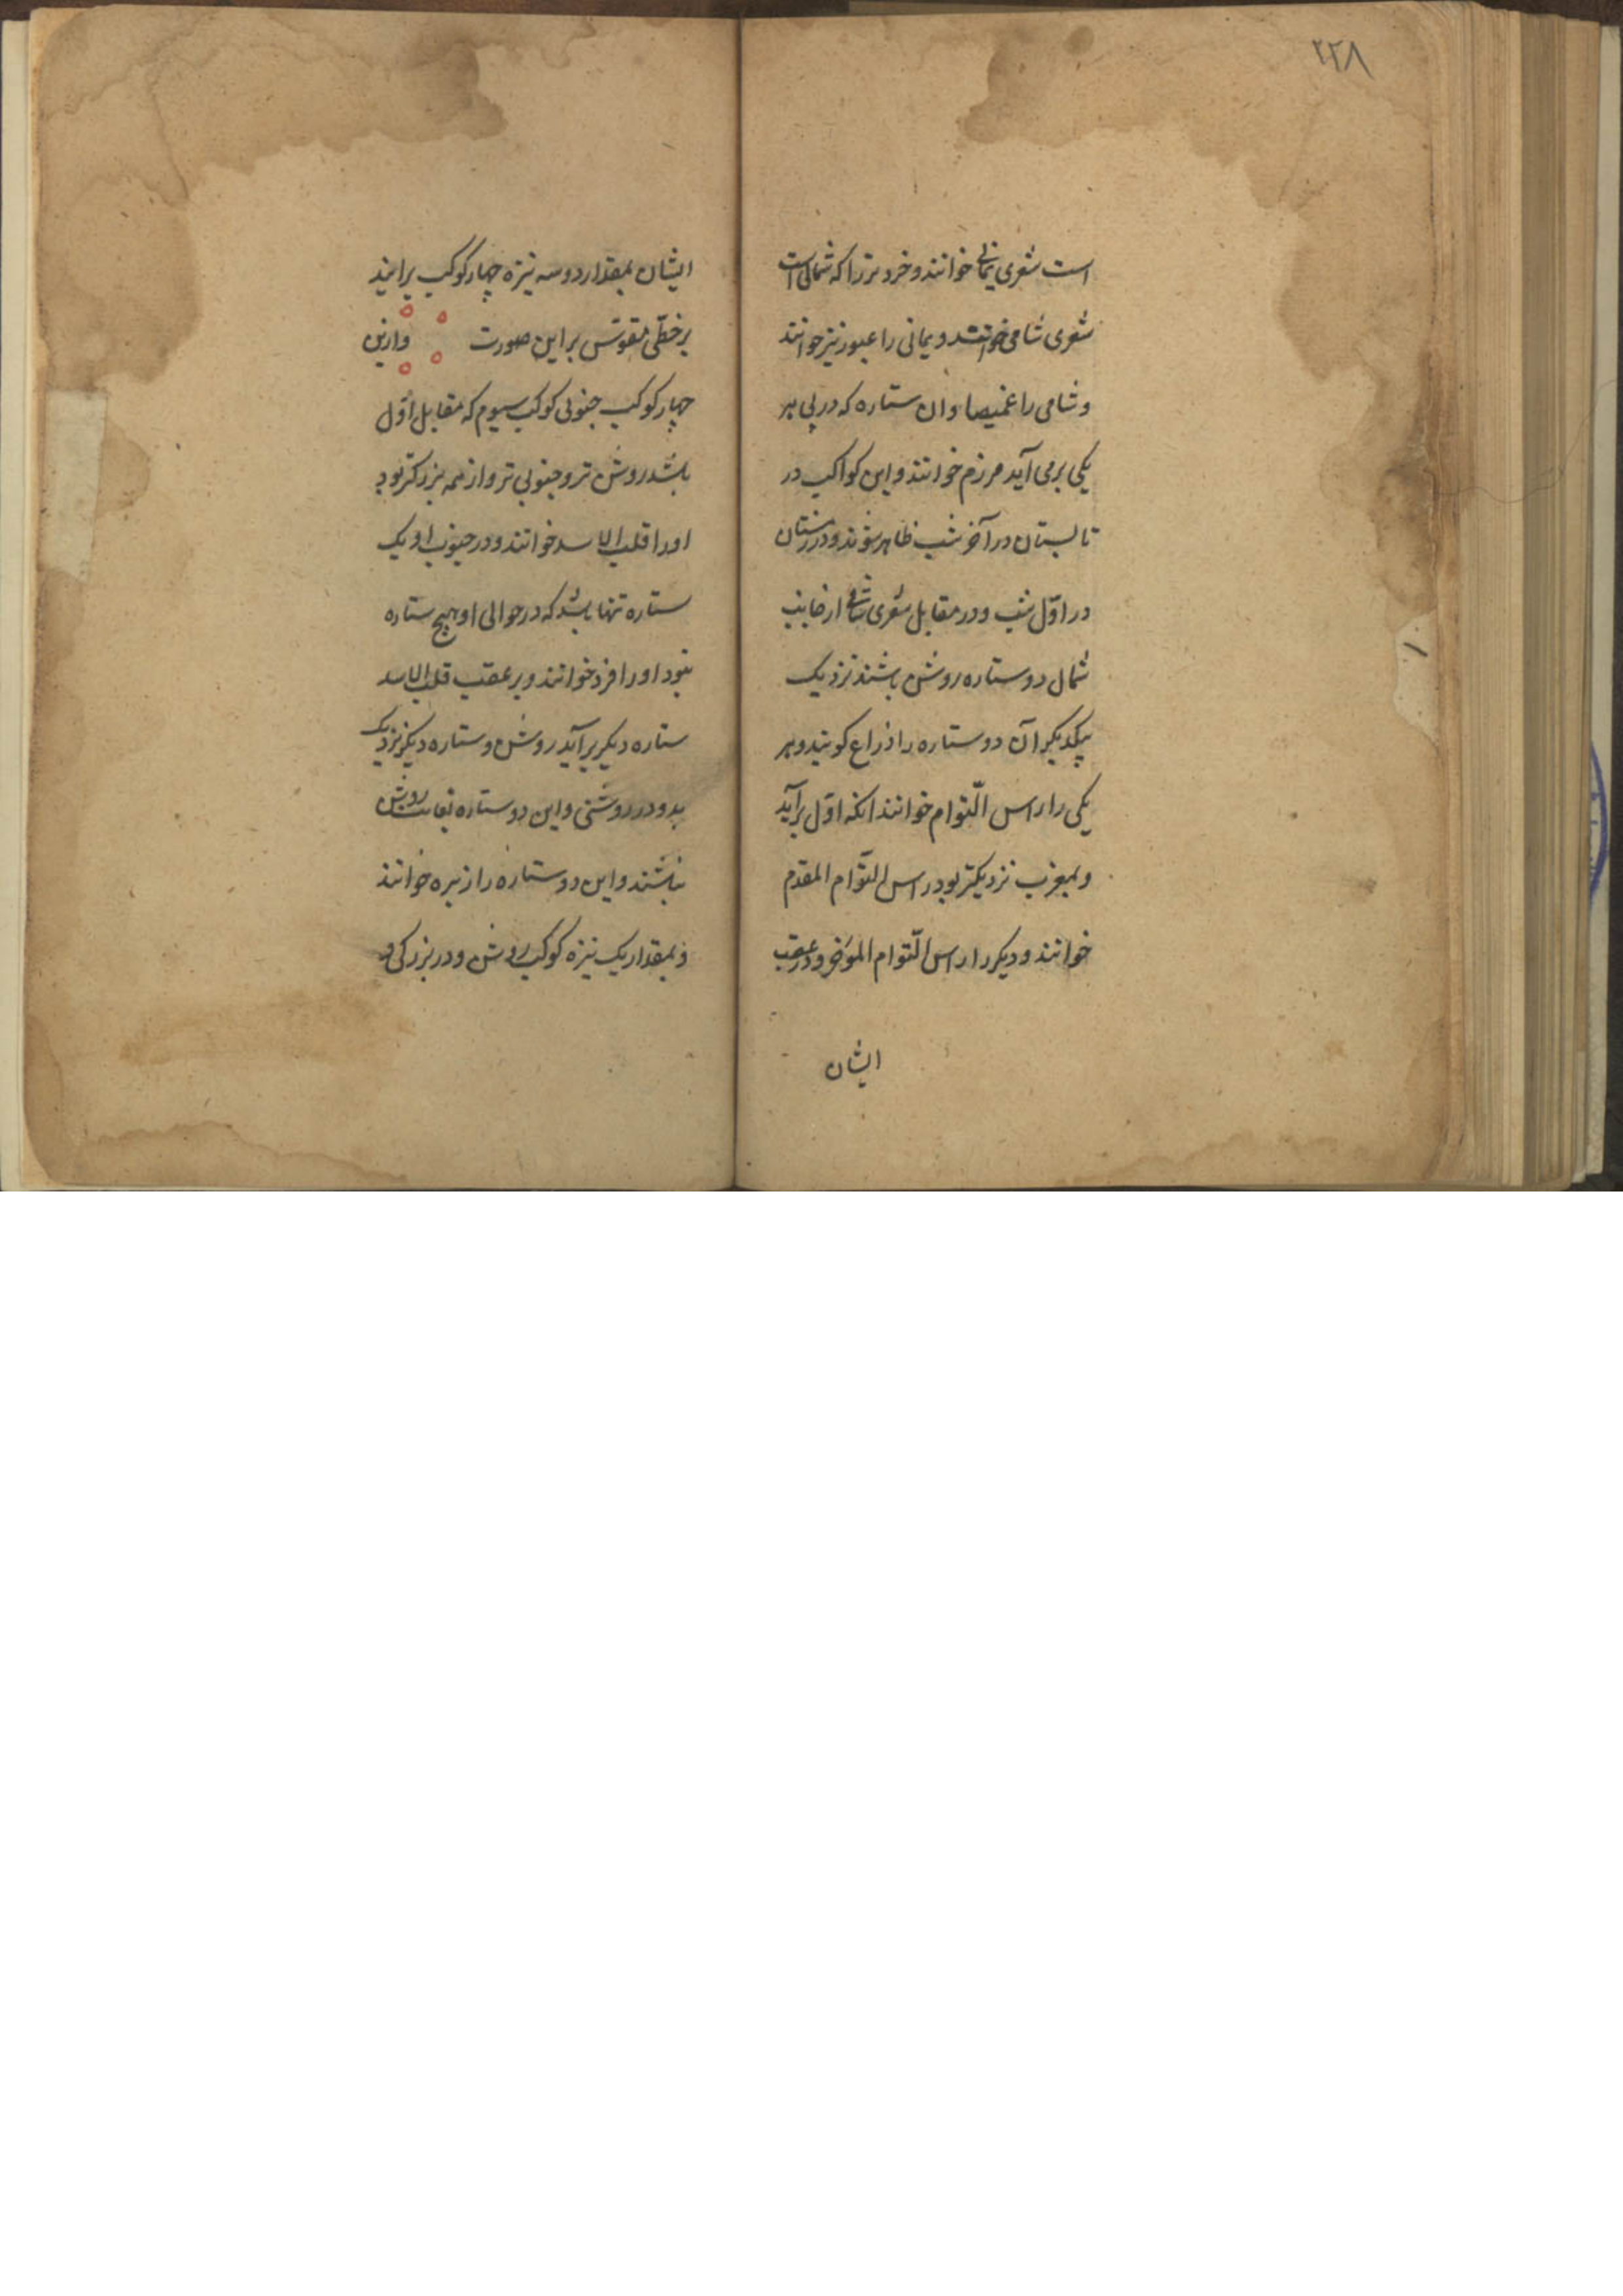 ۲۲۸
است شعری یمانی خوانند و خردترزا که شمالی است
شعری شامی خوانند و یمانی را عبور نیز خوانند
و شامی را غمیصا وان ستاره که در پی هر
یکی برمی آید مرزم خوانند و این کواکب در
تابستان در آخر شب ظاهر شوند و در زمستان
در اول شب و در مقابل شعری شامی از جانب
شمال دو ستاره روشن باشند نزدیک
بیکدیکر آن دو ستاره را ذراع کویند و هر
یکی را راس التوام خوانند انکه اول برآید
و بمغرب نزدیکتر بود راس التوام المقدم
خوانند و دیکر را راس التوام المؤخر و در عقب
ایشان
ایشان بمقدار دو سه نیزه چهار کوکب برایند
بر خطی مقوس بر این صورت وازین
چهار کوکب جنوبی کوکب سیوم که مقابل اول
باشد روشن تر و جنوبی تر و از همه بزرکتر بود
اورا قلب الاسد خوانند و در جنوب او یک
ستاره تنها باشد که در حوالی او هیچ ستاره
نبود اورا فرد خوانند و بر عقب قلب الاسد
ستاره دیکر برآید روشن و ستاره دیکر نزدیک
بدو در روشنی و این دو ستاره بغایت روشن
نباشند و این دو ستاره را زبره خوانند
و بمقدار یک نیزه کوکب روشن و در بزرکی